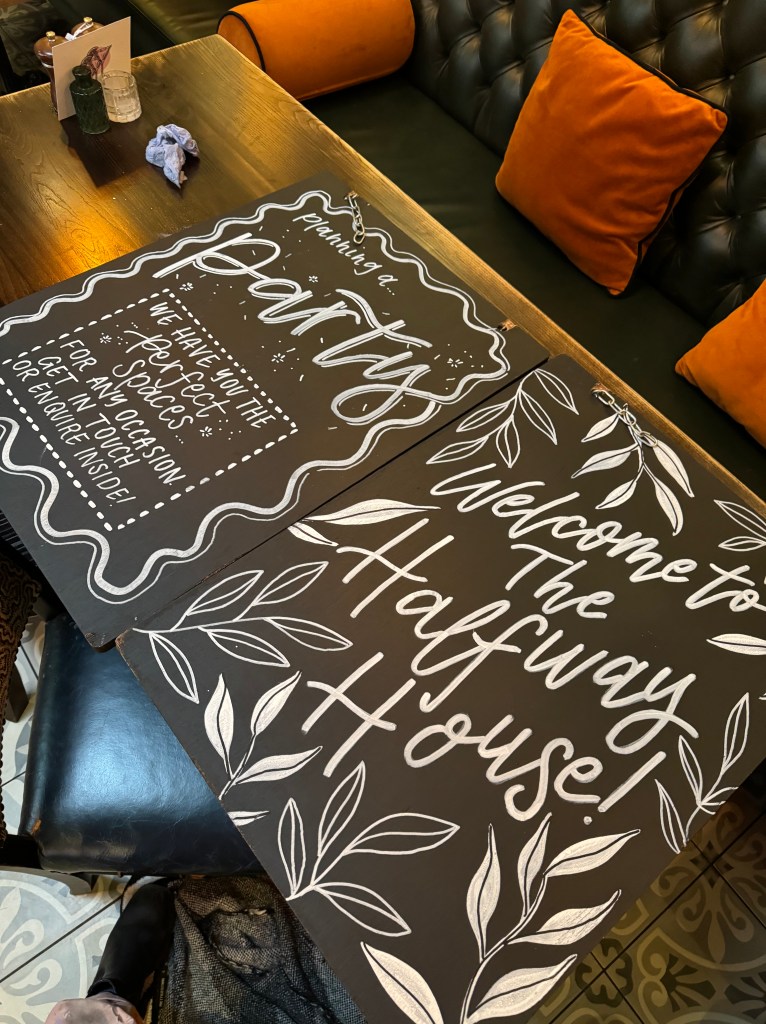 planning a...
party
WE HAVE YOU THE
perfect
spaces
FOR ANY OCCASION.
GET IN TOUCH
OR ENQUIRE INSIDE!
Welcome to
The
Halfway
House!